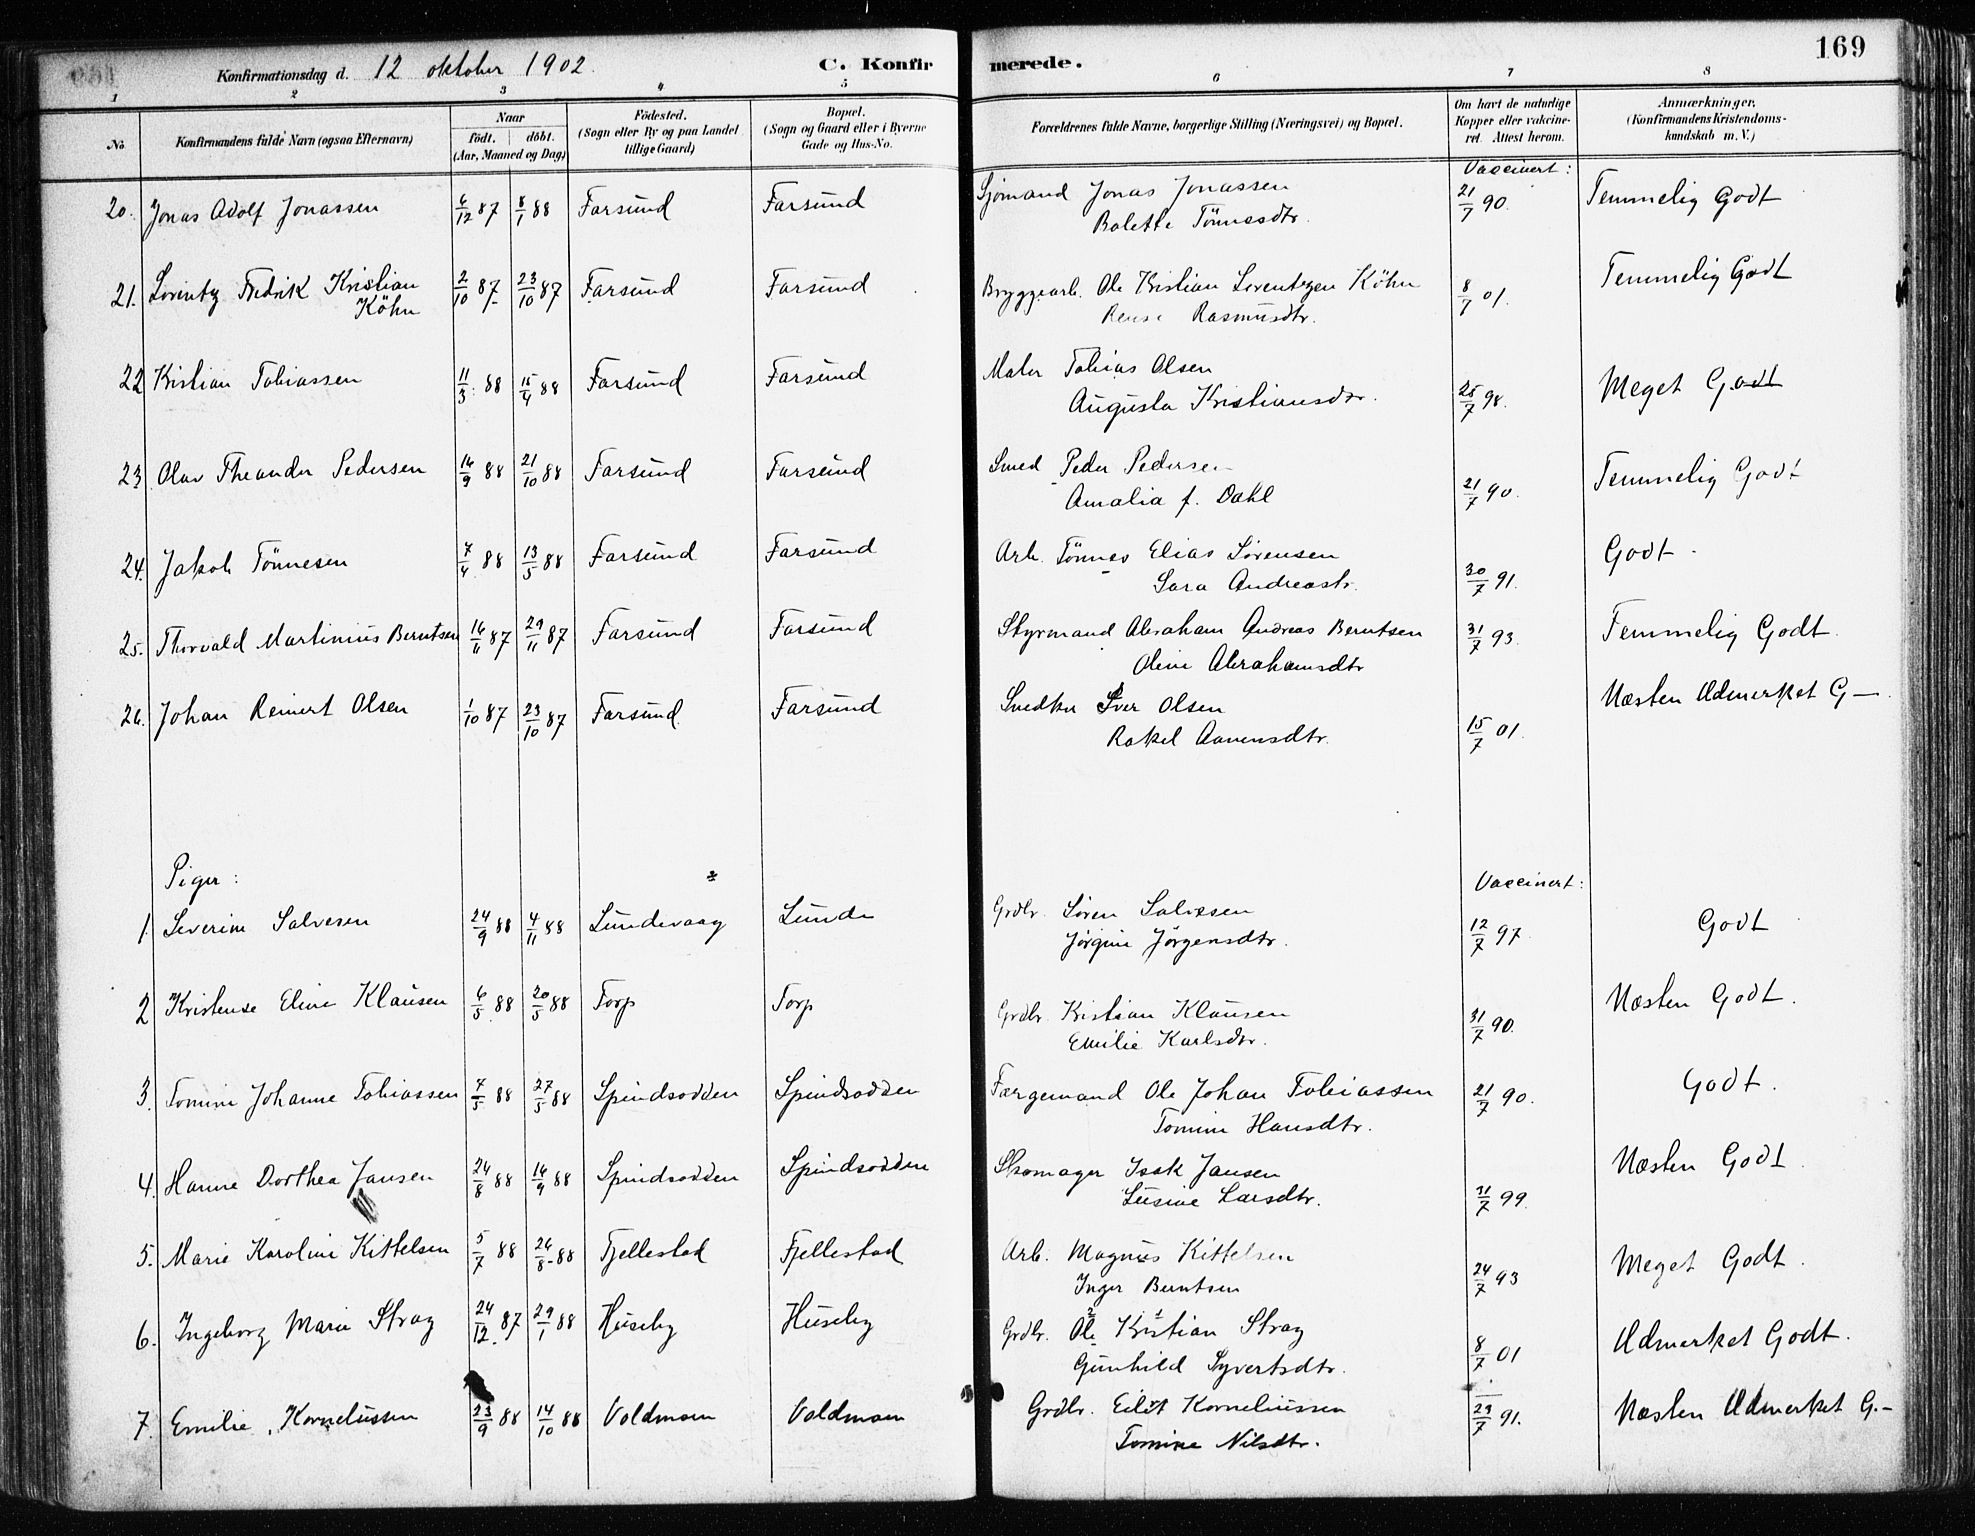 169
Konfirmationsdag d. 12 oktober 1902.
C. Konfirmerede.
1 2 3 4 5 6 7 8
No
Konfirmandens fulde Navn (ogsaa Efternavn)
Naar
födt. döbt.
(Aar, Maaned og Dag)
Födested.
(Sogn eller By og paa Landet
tillige Gaard)
Bopæl.
(Sogn og Gaard eller i Byerne
Gade og Hus-No.
Forældrenes fulde Navne, borgerlige Stilling (Næringsvei) og Bopæl.
Om havt de naturlige
Kopper eller vakcine-
ret. Attest herom.
Anmærkninger,
(Konfirmandens Kristendoms-
kundskab m. V.)
Vaccinert:
20. Jonas Adolf Jonassen 6/12 87 8/1 88 Farsund Farsund Sjömand Jonas Jonassen 21/7 90. Temmelig Godt
Bolette Tönnesdtr.
21. Lorentz Fredrik Kristian 2/10 87 23/10 87 Farsund Farsund Bryggearb. Ole Kristian Lorentzen Köhn 8/7 01. Temmelig Godt
Köhn Rasmusdtr.
22 Kristian Tobiassen 11/3 88 15/4 88 Farsund Farsund Maler Tobias Olsen 25/7 98. Meget Godt
Augusta Kristiansdtr.
23 Olav Theander Pedersen 16/9 88 21/10 88 Farsund Farsund Smed Peder Pedersen 21/7 90. Temmelig Godt
Amalia f. Dahl
24. Jakob Tönnesen 7/4 88 13/5 88 Farsund Farsund Arb. Tönnes Elias Sörensen 30/7 91. Godt.
Sara Andreastr.
25. Thorvald Martinius Berntsen 87 29/11 87 Farsund Farsund Styrmand Abraham Andreas Berntsen 31/7 93. Temmelig Godt.
Oline Abrahamsdtr
26. Johan Reinert Olsen 1/10 87 23/10 87 Farsund Farsund Snedker Iver Olsen 15/7 01. Næsten Udmerket G—
Rakel Aanensdtr.
Piger: Vaccinert:
1. Severine Salvesen 24/9 88 4/11 88 Lundevaag Lunde Grdbr. Sören Salvesen 12/7 97. Godt
Jörgine Jörgensdtr.
2 Kristense Eline Klausen 6/5 88 20/5 88 Torp Torp Grdbr. Kristian Klausen 31/7 90. Næsten Godt.
Emilie Karlsdtr.
3. Tomine Johanne Tobiassen 7/5 88 27/5 88 Spindsodden Spindsodden Færgemand Ole Johan Tobiassen 21/7 90. Godt.
Tomine Hansdtr.
4. Hanne Dorthea Jansen 24/8 88 16/9 88 Spindsodden Spindsodden Skomager Isak Jansen 31/7 99. Næsten Godt.
Lusine Larsdtr.
5. Marie Karoline Kittelsen 5/7 88 26/8 88 Fjellestad Fjellestad Arb. Magnus Kittelsen 24/7 93 Meget Godt.
Inger Berntsen
6. Ingeborg Marie Stray 24/12 87 29/1 88 Huseby Huseby Grdbr. Ole Kristian Stray 8/7 01 Udmerket Godt.
Gunhild Syvertsdtr.
7. Emilie Korneliussen 23/9 88 14/10 88 Voldmoen Voldmoen Grdbr. Eilit Korneliussen 29/7 91. Næsten Udmerket G.—
Tomine Nilsdtr.